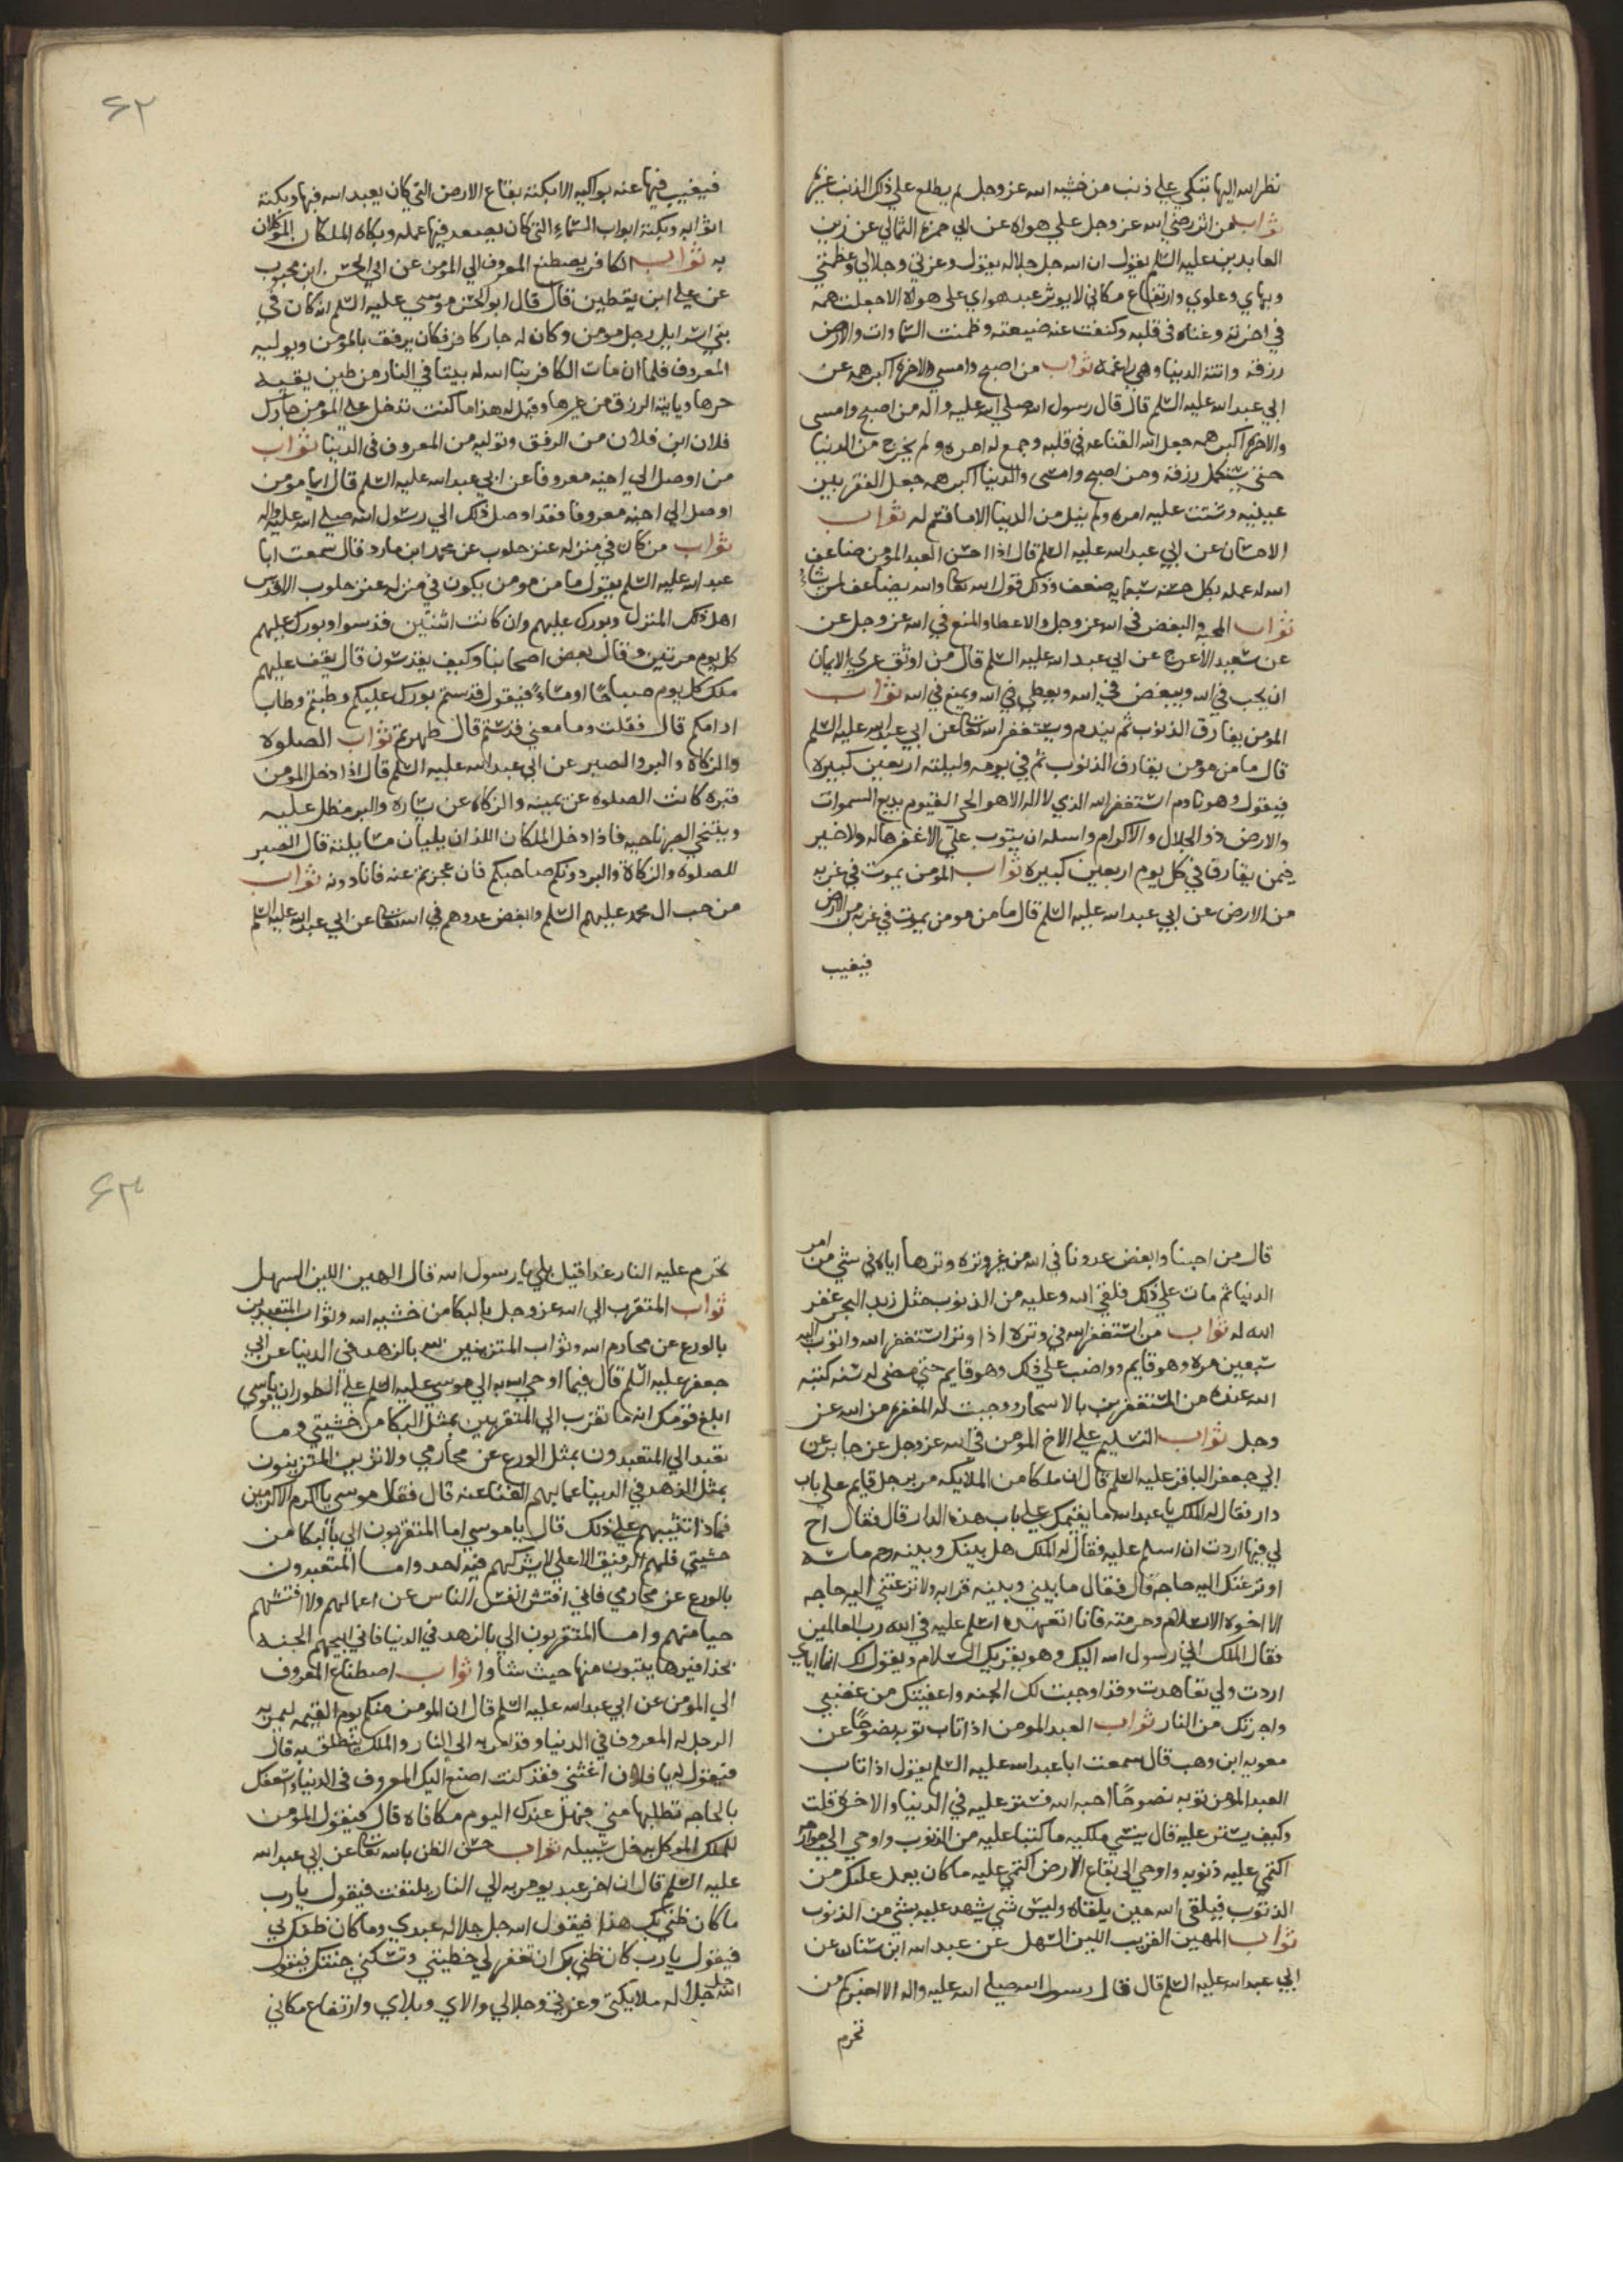 نظر الله اليها تبكي علي ذنب من خشيه الله عز وجل لم يطلع علي ذلك الذنب غيره
ثواب من اثر رضي الله عز وجل علي هواه عن ابي حمزه الثمالي عن زين
العابدين عليه السلم يقول ان الله جل جلاله يقول وعزتي وجلالي وعظمتي
وبهاي وعلوي وارتفاع مكاني لا يوثر عبد هواي علي هواه الا جعلت همه
في اخرته وغناه في قلبه وكففت عنه ضيعته وضمنت السماوات والارض
رزقه واتته الدنيا وهي راغمة ثواب من اصبح وامسي والاخرة اكبر همه عن
ابي عبد الله عليه السلم قال قال رسول الله صلي الله عليه واله من اصبح وامسي
والاخرة اكبر همه جعل الله القناعه في قلبه وجمع له امره ولم يخرج من الدنيا
حتي يستكمل رزقه ومن اصبح وامسي والدنيا اكبر همه جعل الفقر بين
عينيه وشتت عليه امره ولم ينل من الدنيا الا ما قسم له ثواب
الاحسان عن ابي عبد الله عليه السلم قال اذا احسن العبد المومن ضاعف
الله له عمله بكل حسنه سبعمايه ضعف وذلك قول الله تعا والله يضاعف لمن يشاء
ثواب المحبه والبغض في الله عز وجل والاعطا والمنع في الله عز وجل عن
عن سعيد الاعرج عن ابي عبد الله عليه السلم قال من اوثق عري الايمان
ان يحب في الله ويبغض في الله ويعطي في الله ويمنع في الله ثواب
المومن يفارق الذنوب ثم يندم ويستغفر الله تعا عن ابي عبد الله عليه السلم
قال ما من مومن يقارف الذنوب ثم في يومه وليلته اربعين كبيره
فيقول وهو نادم استغفر الله الذي لا اله الا هو الحي القيوم بديع السموات
والارض ذو الجلال والاكرام واسله ان يتوب علي الا غفرها له ولا خير
فيمن يقارف في كل يوم اربعين كبيره ثواب المومن يموت في غربه
من الارض عن ابي عبد الله عليه السلم قال ما من مومن يموت في غربه من الارض
فيغيب
۶۲
فيغيب فيها عنه بواكيه الا بكته بقاع الارض التي كان يعبد الله فيها وبكته
اثوابه وبكته ابواب السماء التي كان يصعد فيها عمله وبكاه الملكان الموكلان
به ثواب الكافر يصطنع المعروف الي المومن عن ابي الحسن ابن محبوب
عن علي ابن يقطين قال قال ابو الحسن موسي عليه السلم انه كان في
بني اسرايل رجل مومن وكان له جار كافر فكان يرفق بالمومن ويوليه
المعروف فلما ان مات الكافر بنا الله له بيتا في النار من طين يقيه
حرها وياتيه الرزق من غيرها وقيل له هذا ما كنت تدخل علي المومن جارك
فلان ابن فلان من الرفق وتوليه من المعروف في الدنيا ثواب
من اوصل الي اخيه معروفا عن ابي عبد الله عليه السلم قال ايما مومن
اوصل الي اخيه معروفا فقد اوصل ذلك الي رسول الله صلي الله عليه واله
ثواب من كان في منزله عنز حلوب عن محمد ابن مارد قال سمعت ابا
عبد الله عليه السلم يقول ما من مومن يكون في منزله عنز حلوب الا قدس
اهل ذلك المنزل وبورك عليهم وان كانت اثنتين قدسوا وبورك عليهم
كل يوم مرتين وقال بعض اصحابنا وكيف يقدسون قال يقف عليهم
ملك كل يوم صباحًا او مساءً فيقول قدستم بورك عليكم وطبتم وطاب
ادامكم قال فقلت وما معني قدستم قال طهرتم ثواب الصلوة
والزكاة والبر والصبر عن ابي عبد الله عليه السلم قال اذا دخل المومن
قبره كانت الصلوة عن يمينه والزكاة عن يساره والبر مظل عليه
ويتنحي الصبر ناحيه فاذا دخل الملكان اللذان يليان مسايلته قال الصبر
للصلوة والزكاة والبر دونكم صاحبكم فان عجزتم عنه فانا دونه ثواب
من حب ال محمد عليهم السلم وابغض عدوهم في الله تعا عن ابي عبد الله عليه السلم
قال من احبنا وابغض عدونا في الله من غير وتره وترها اياه في شي من امر
الدنيا ثم مات علي ذلك فلقي الله وعليه من الذنوب مثل زبد البحر غفر
الله له ثواب من استغفر الله في وتره اذا وتر استغفر الله واتوب اليه
سبعين مره وهو قايم وواضب علي ذلك وهو قايم حتي مضي له سنه كتبه
الله عنده من المستغفرين بالاسحار ووجبت له المغفره من الله عز
وجل ثواب التسليم علي الاخ المومن في الله عز وجل عن جابر عن
ابي جعفر الباقر عليه السلم قال ان ملكا من الملايكه مر برجل قايم علي باب
دار فقال له الملك يا عبد الله ما يقيمك علي باب هذه الدار قال فقال اخ
لي فيها اردت ان اسلم عليه فقال له الملك هل بينك وبينه رحم ماسه
او نزعتك اليه حاجه قال فقال ما بيني وبينه قرابه ولا نزعتني اليه حاجه
الا اخوة الاسلام وحرمته فانا اتعهده اسلم عليه في الله رب العالمين
فقال الملك اني رسول الله اليك وهو يقريك السلام ويقول لك انما اياي
اردت ولي تعاهدت وقد اوجبت لك الجنه واعفيتك من غضبي
واجرتك من النار ثواب العبد المومن اذا تاب توبه نصوحًا عن
معويه ابن وهب قال سمعت ابا عبد الله عليه السلم يقول اذا تاب
العبد المومن توبه نصوحًا احبه الله فستر عليه في الدنيا والاخرة قلت
وكيف يستر عليه قال ينسي ملكيه ما كتبا عليه من الذنوب واوحي الي جوارحه
اكتمي عليه ذنوبه واوحي الي بقاع الارض اكتمي عليه ما كان يعمل عليك من
الذنوب فيلقي الله حين يلقاه وليس شي يشهد عليه بشي من الذنوب
ثواب الهين القريب اللين السهل عن عبد الله ابن سنان عن
ابي عبد الله عليه السلم قال قال رسول الله صلي الله عليه واله الا اخبركم من
تحرم
۶۳
تحرم عليه النار غدا قيل بلي يا رسول الله قال الهين اللين السهل
ثواب المتقرب الي الله عز وجل بالبكا من خشيه الله وثواب المتعبدين
بالورع عن محارم الله وثواب المتزينين لله بالزهد في الدنيا عن ابي
جعفر عليه السلم قال فيما اوحي الله به الي موسي عليه السلم علي الطور ان يا موسي
ابلغ قومك انه ما تقرب الي المتقربين بمثل البكا من خشيتي وما
تعبد الي المتعبدون بمثل الورع عن محارمي ولا تزين المتزينون
بمثل الزهد في الدنيا عما بهم الغنا عنه قال فقال موسي يا اكرم الاكرمين
فماذا تثيبهم علي ذلك قال يا موسي اما المتقربون الي بالبكا من
خشيتي فلهم الرفيق الاعلي لا يشركهم فيه احد واما المتعبدون
بالورع عن محارمي فاني افتش الناس عن اعمالهم ولا افتشهم
حيا منهم واما المتقربون الي بالزهد في الدنيا فاني ابيحهم الجنه
بحذافيرها يتبون منها حيث شاوا ثواب اصطناع المعروف
الي المومن عن ابي عبد الله عليه السلم قال ان المومن منكم يوم القيمه ليمر به
الرجل له المعروف في الدنيا وقد امر به الي النار والملك ينطلق به قال
فيقول له يا فلان اغثني فقد كنت اصنع اليك المعروف في الدنيا واسعفك
بالحاجه تطلبها مني فهل عندك اليوم مكافاه قال فيقول المومن
للملك الموكل به خل سبيله ثواب حسن الظن بالله تعا عن ابي عبد الله
عليه السلم قال ان اخر عبد يومر به الي النار يلتفت فيقول يا رب
ما كان ظني بك هذا فيقول الله جل جلاله عبدي وما كان ظنك بي
فيقول يا رب كان ظني بك ان تغفر لي خطيتي وتسكنني جنتك فيقول
الله جل جلاله ملايكتي وعزتي وجلالي والاي وبلاي وارتفاع مكاني